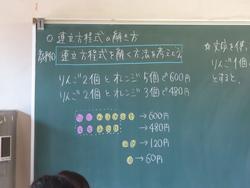 ○ 連立方程式の解き方
連立方程式を解く方法を考えよう
りんご2個とオレンジ5個で600円
りんご2個とオレンジ3個で480円
→600円
→480円
→120円
→60円
りんご1個
とすると、